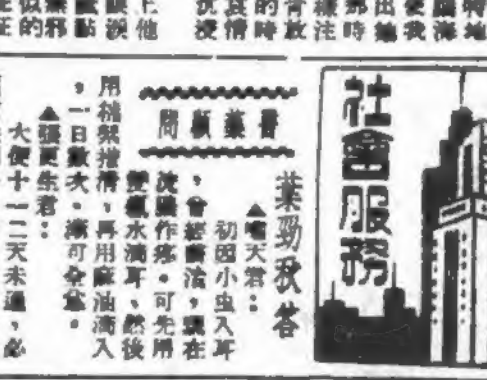 那時
的時
哀情
上他
眼淚
似的
社會服務
醫藥顧問
葉勁秋答
▲嘯天君：
初因小虫入耳
，曾經醫治，現在
流膿作疼。可先用
雙氧水滴耳，然後
用棉絮揩清，再用麻油滴入
，一日數次，漸可全愈。
▲張更生君：
大便十一二天未通，必